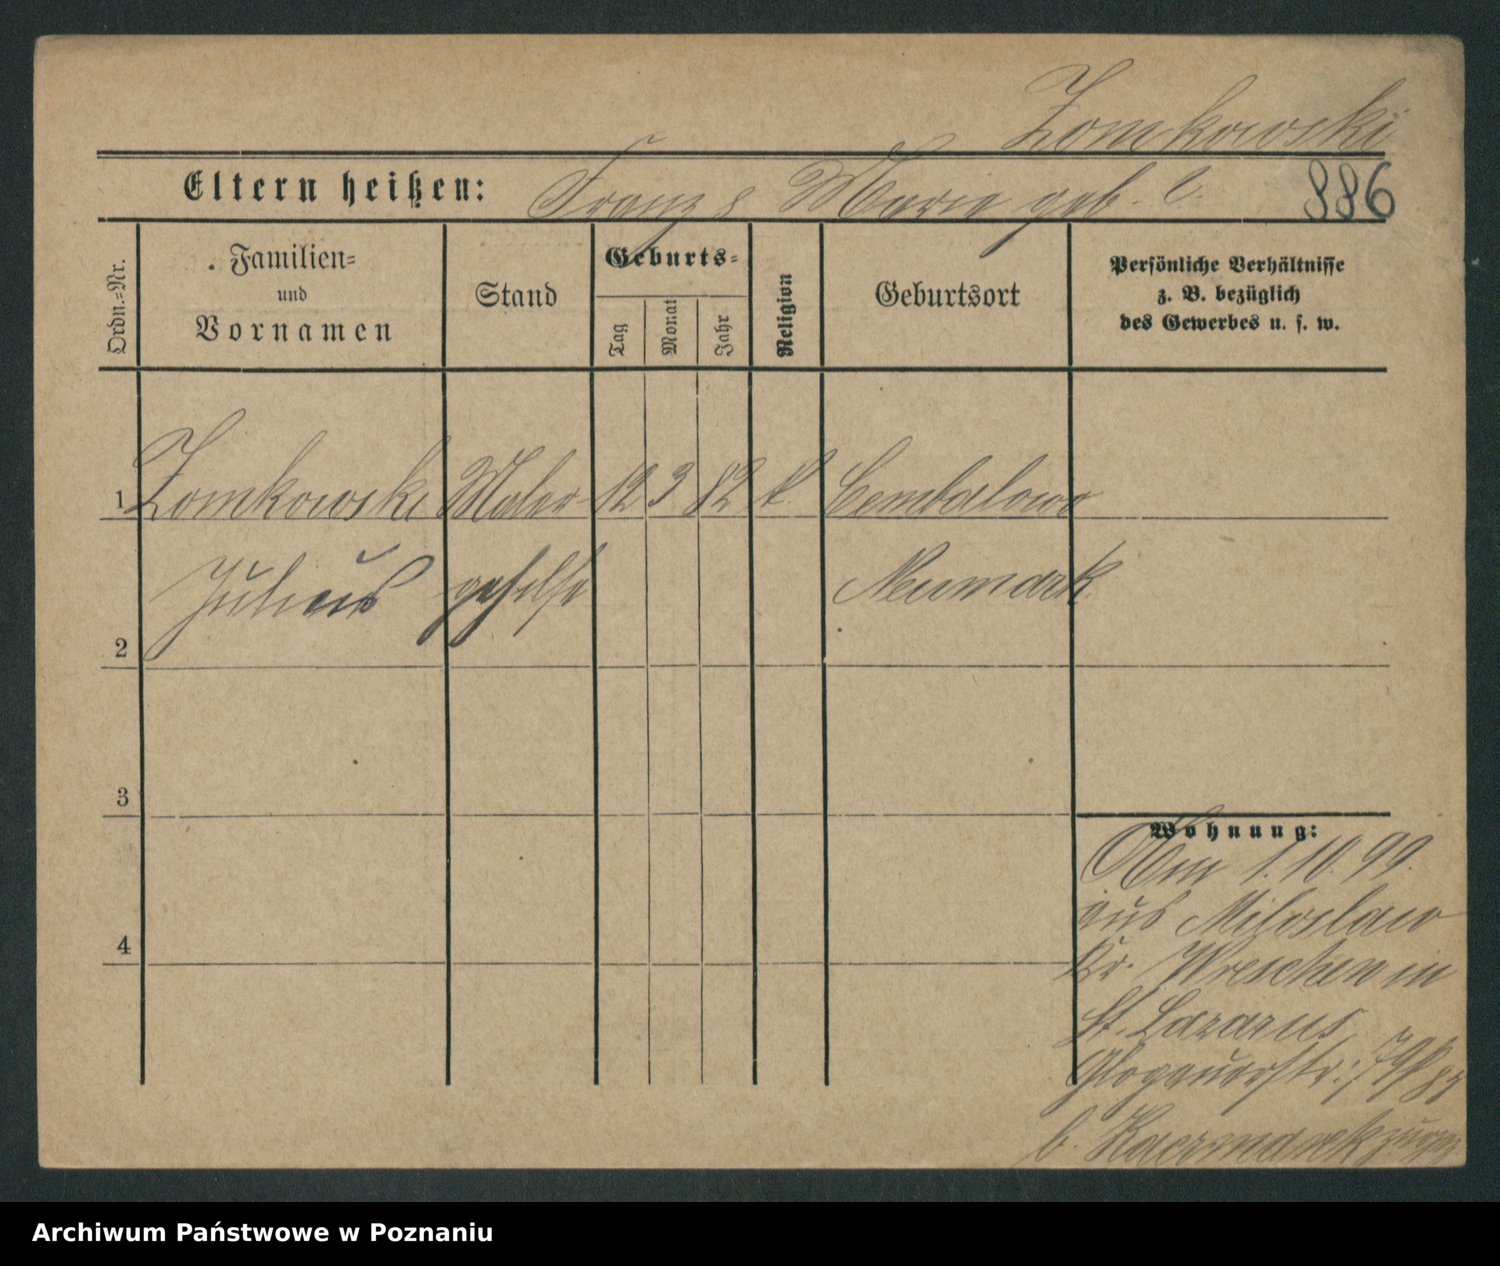 Zomkowski
Eltern heißen: Franz & Marie geb. Z. 886
Ordn.=Nr.
Familien=
und
Vornamen
Stand
Geburts=
Tag
Monat
Jahr
Religion
Geburtsort
Persönliche Verhältnisse
z. B. bezüglich
des Gewerbes u. s. w.
1 Zomkowski Maler 12 3 82 k. Cembalowo
Julius gehilfe Neumark
2
3
Wohnung:
Am 1.10.99.
aus Miloslaw
4
Kr. Wreschen in
St. Lazarus
Glogauerstr. 79
b. Kaczmarek
Archiwum Państwowe w Poznaniu